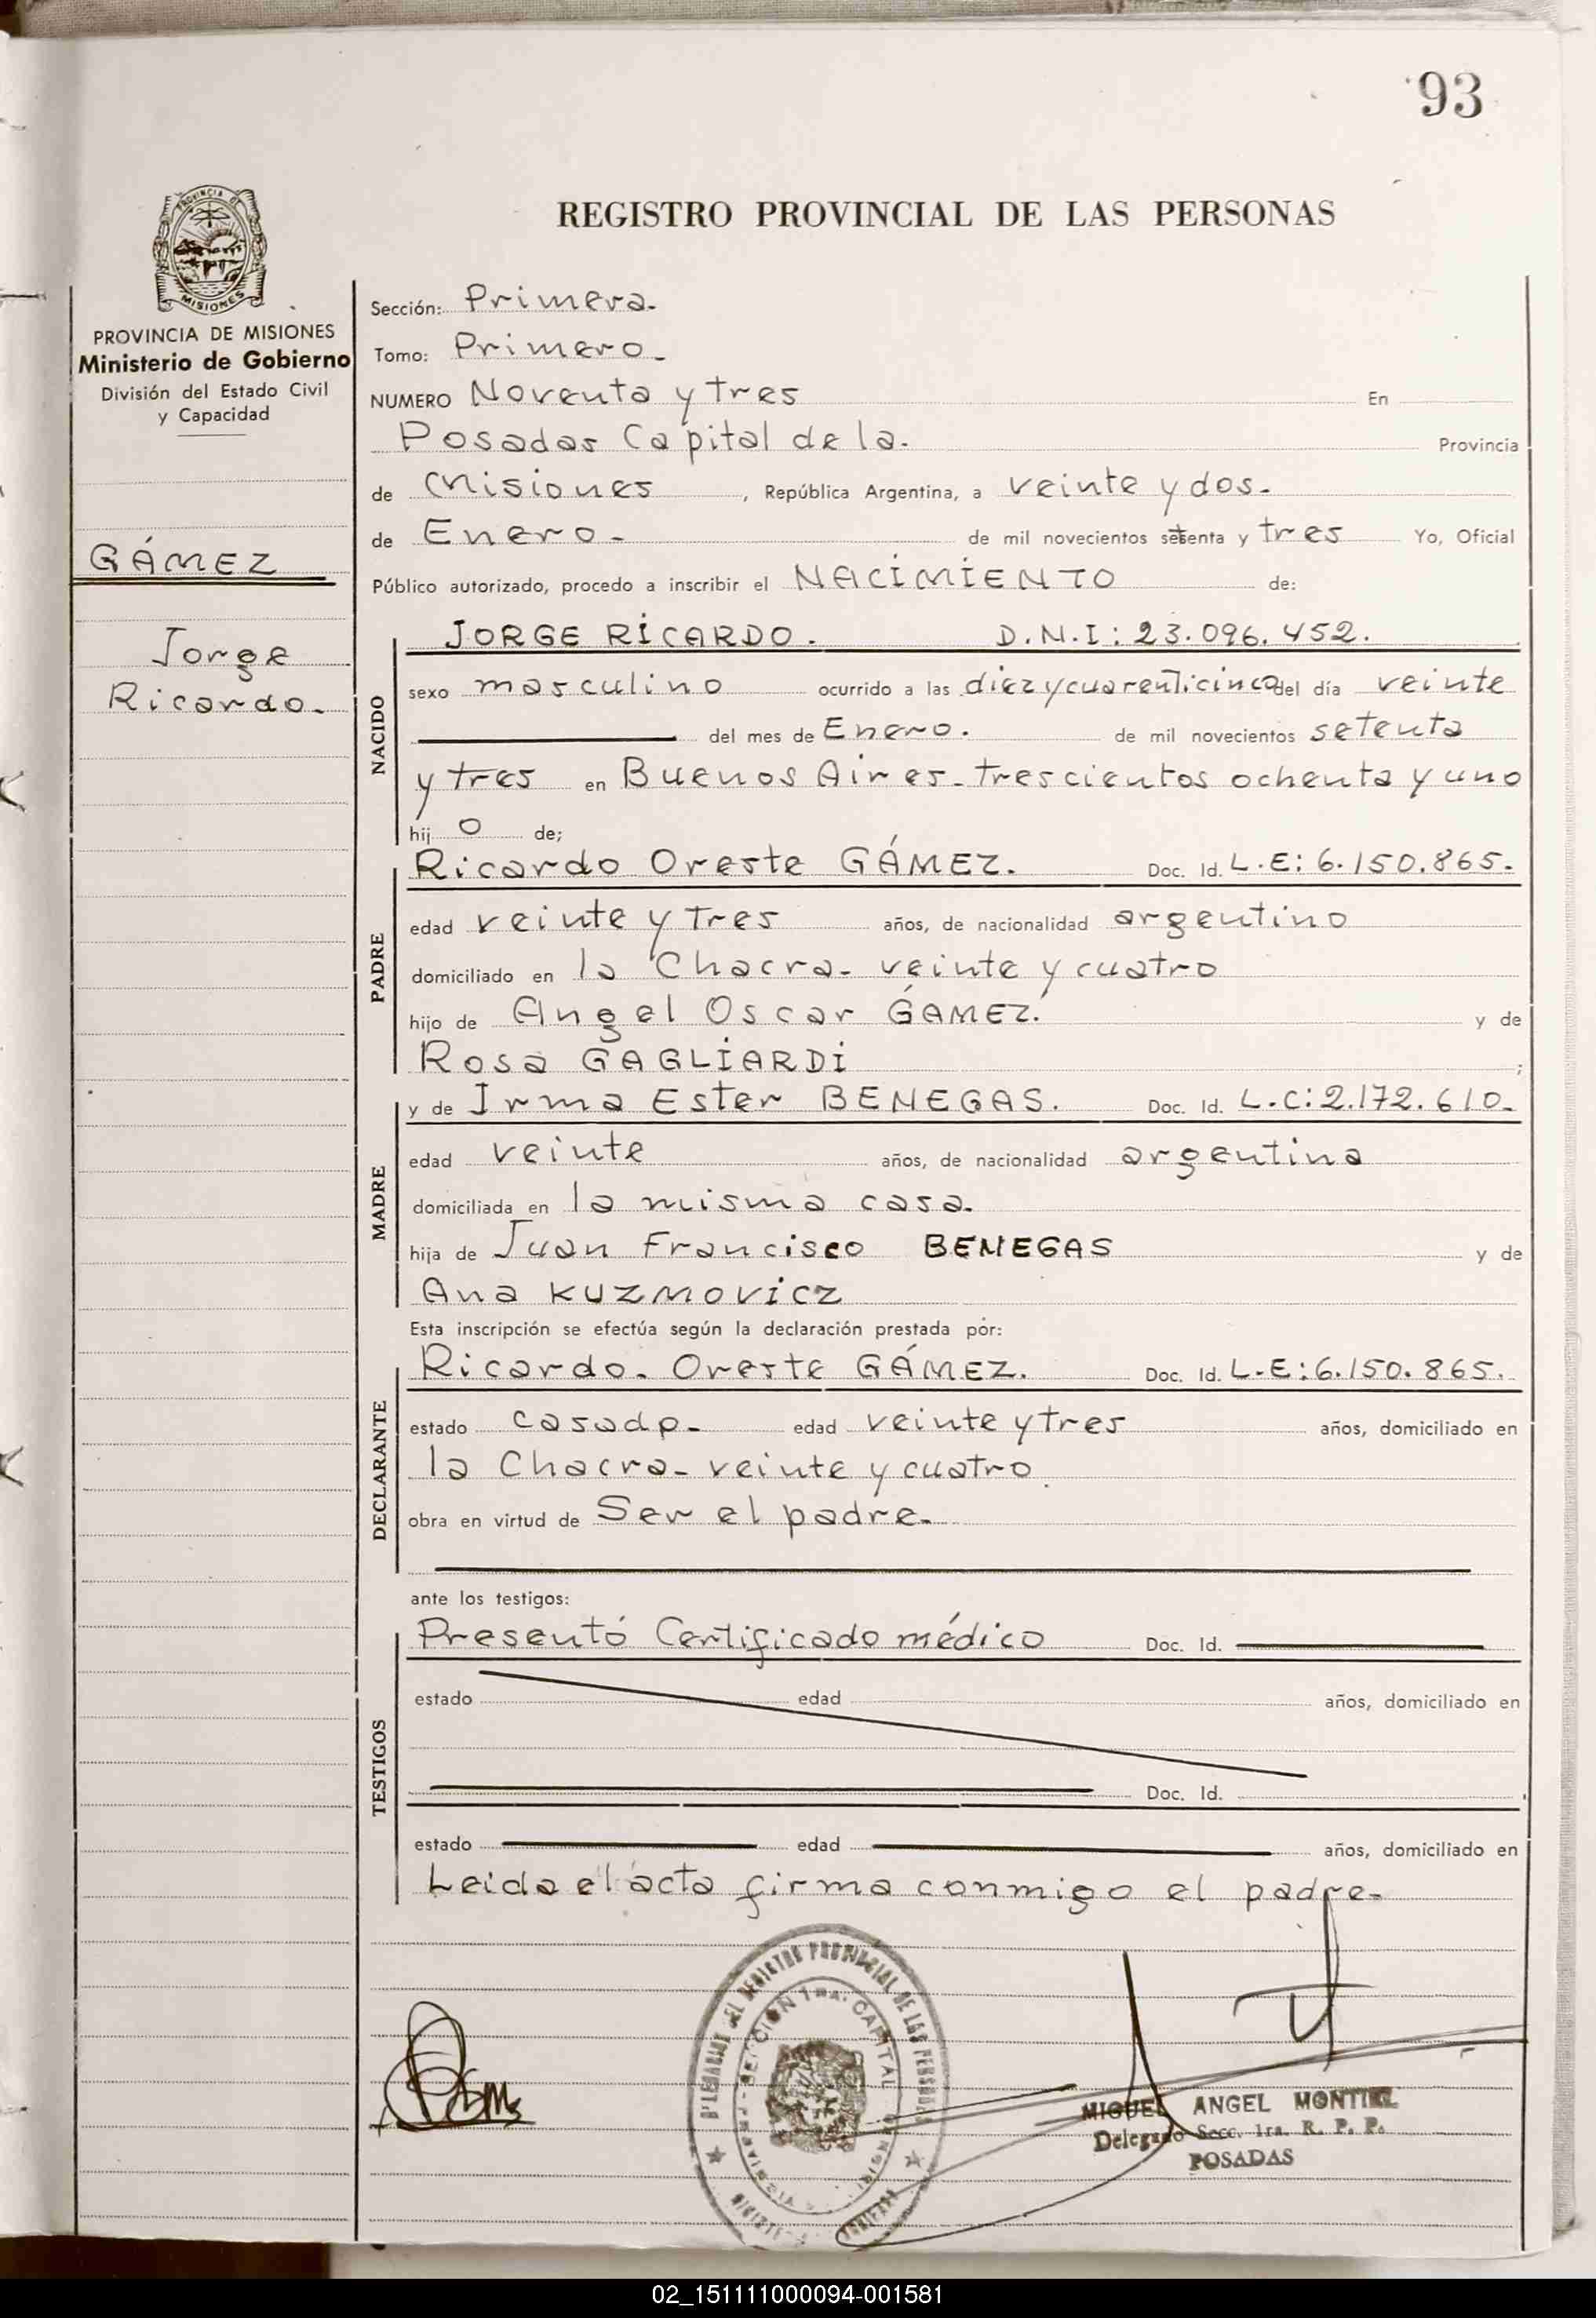 93
REGISTRO PROVINCIAL DE LAS PERSONAS
PROVINCIA DE MISIONES
Ministerio de Gobierno
División del Estado Civil
y Capacidad
GÁMEZ
Jorge
Ricardo.
Sección: Primera.
Tomo: Primero.
NUMERO Noventa y tres En
Posadas Capital de la. Provincia
de Misiones, República Argentina, a veinte y dos.
de Enero. de mil novecientos setenta y tres Yo, Oficial
Público autorizado, procedo a inscribir el NACIMIENTO de:
NACIDO
JORGE RICARDO. D.N.I: 23.096.452.
sexo masculino ocurrido a las diez y cuarenticinco del día veinte
del mes de Enero. de mil novecientos setenta
y tres en Buenos Aires - trescientos ochenta y uno
hij o de;
PADRE
Ricardo Oreste GÁMEZ. Doc. Id. L.E: 6.150.865.
edad veinte y tres años, de nacionalidad argentino
domiciliado en la Chacra - veinte y cuatro
hijo de Angel Oscar GÁMEZ. y de
Rosa GAGLIARDI ;
MADRE
y de Irma Ester BENEGAS. Doc. Id. L.C: 2.172.610.
edad veinte años, de nacionalidad argentina
domiciliada en la misma casa.
hija de Juan Francisco BENEGAS y de
Ana KUZMOVICZ
Esta inscripción se efectúa según la declaración prestada por:
DECLARANTE
Ricardo. Oreste GÁMEZ. Doc. Id. L.E: 6.150.865.
estado casado. edad veinte y tres años, domiciliado en
la Chacra - veinte y cuatro
obra en virtud de Ser el padre.
ante los testigos:
TESTIGOS
Presentó Certificado médico Doc. Id.
estado edad años, domiciliado en
Doc. Id.
estado edad años, domiciliado en
Leida el acta firma conmigo el padre.
DEL REGISTRO PROVINCIAL DE LAS PERSONAS
SECCION 1ra. CAPITAL
MIGUEL ANGEL MONTIEL
Delegado Secc. 1ra. R. P. P.
POSADAS
02_151111000094-001581